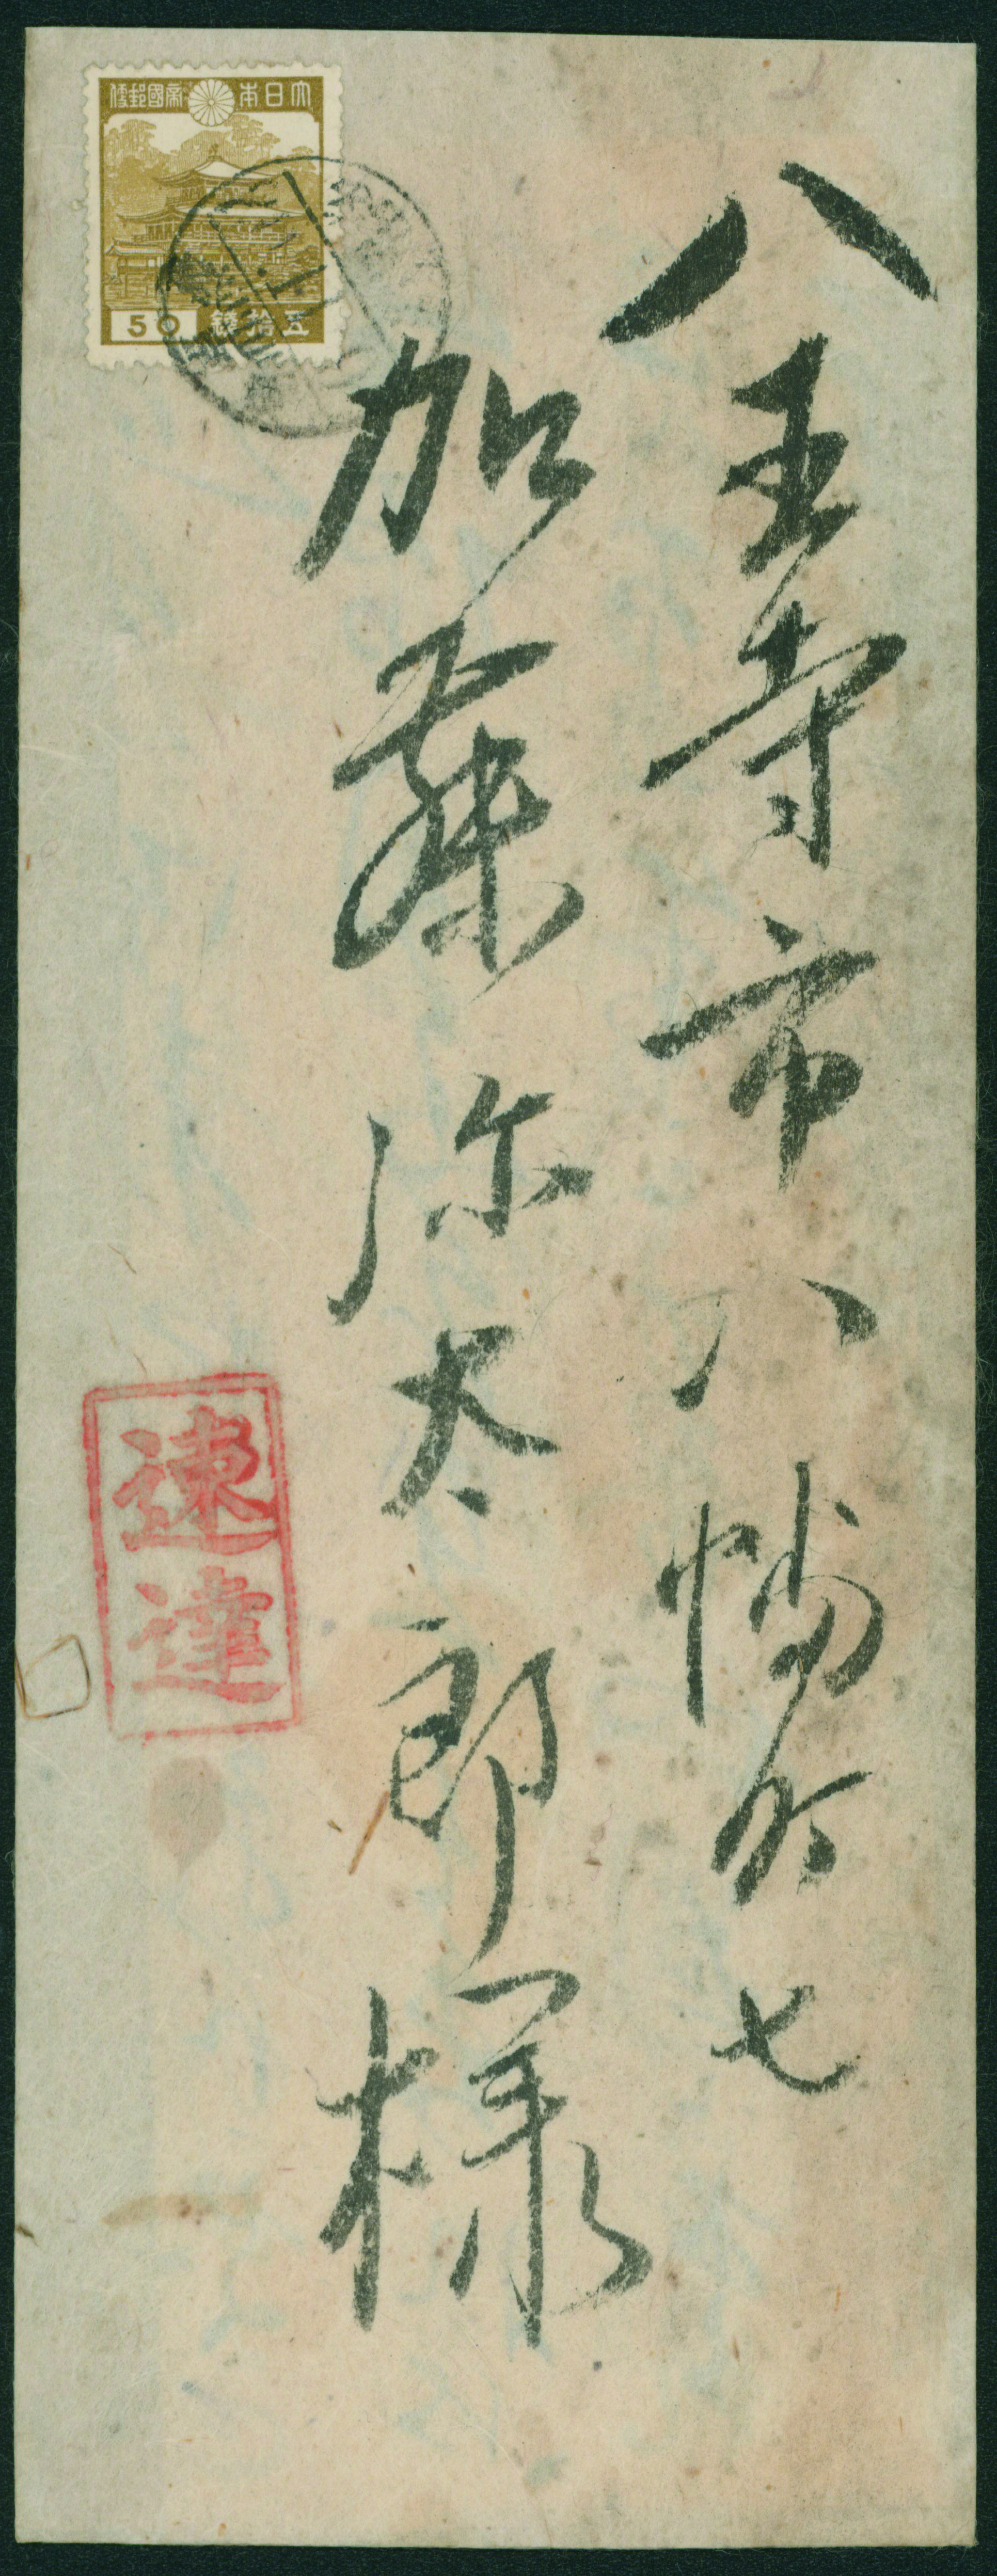 八王寺市八幡町七
加藤弥太郎様
大日本帝國郵便
50
五拾錢
速達